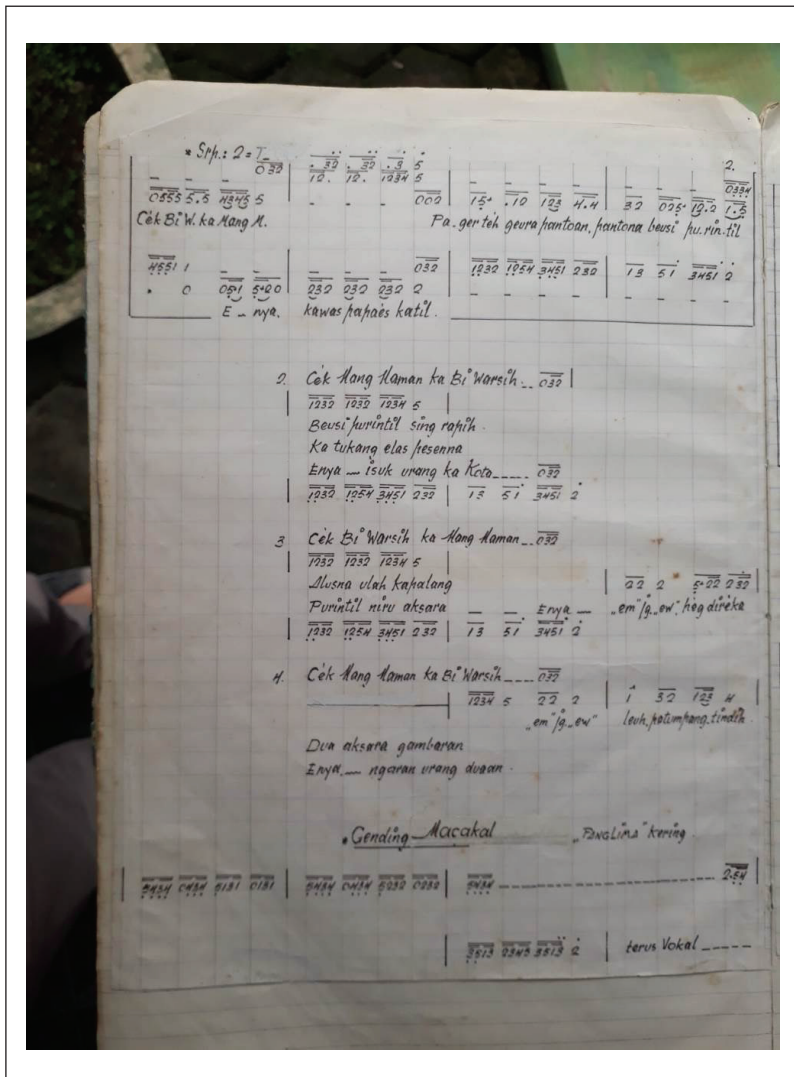 * Srp.: 2 = T_
032 | .32 .32 .3 5 | 2.
_ _ _ | 12. 12. 1234 5 | _ _ _ _ | _ _ _ 0334
0555 5.5 4345 5 | - - - 002 | 15. .12 123 4.4 | 32 025. 12.2 1.5
Cék Bi W. ka Mang M. Pa.ger téh geura pantoan, pantona beusi pu.rin.til
4551 1 _ _ | _ _ _ 032 | 1232 1254 3451 232 | 13 51 3451 2
. 0 051 5.20 | 232 232 232 2 | - - - - | - - - -
E _ nya. kawas papaés katil.
2. Cék Mang Maman ka Bi Warsih... 032 |
| 1232 1232 1234 5 |
Beusi purintil sing rapih.
Ka tukang elas pesenna
Enya __ isuk urang ka Kota_____ 032
| 1232 1254 3451 232 | 13 51 3451 2
3 Cék Bi Warsih ka Mang Maman__ 032
| 1232 1232 1234 5 |
Alusna ulah kapalang | 22 2 5.22 232 |
Purintil niru aksara _ _ Enya _ „em" jg. „ew", heg diréka
| 1232 1254 3451 232 | 13 51 3451 2
4. Cék Mang Maman ka Bi Warsih____ 032
| 1234 5 22 2 | 1 32 123 4
„em" jg. „ew" leuh, patumpang.tindih.
Dua aksara gambaran
Enya.__ ngaran urang duaan.
. Gending Macakal „PANGLIMA" kering.
| 5434 0434 5131 0131 | 5434 0434 5232 0232 | 5434 ---------------- 2.54 |
| 3513 2345 3513 2 | terus Vokal _____